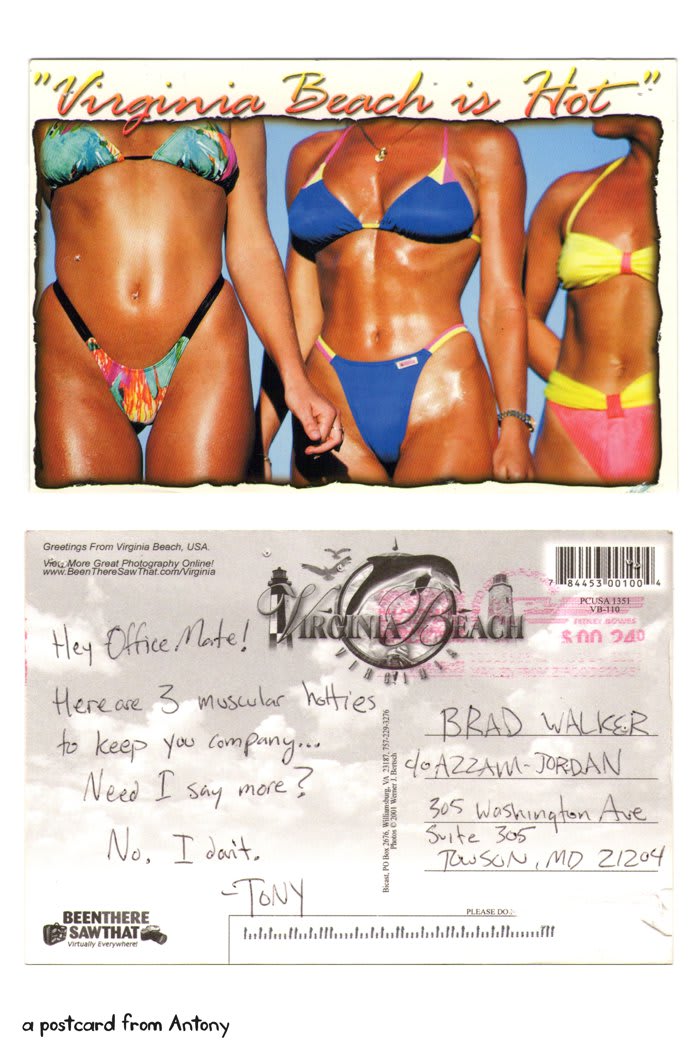 "Virginia Beach is Hot"
Greetings From Virginia Beach, USA.
View More Great Photography Online!
www.BeenThereSawThat.com/Virginia
VIRGINIA BEACH
VIRGINIA
7 84453 00100 4
PCUSA 1351
VB-110
PITNEY BOWES
$00.240
Hey Office Mate!
Here are 3 muscular hotties
to keep you company...
Need I say more?
No, I don't.
-TONY
Bicast, PO Box 2676, Williamsburg, VA 23187, 757-229-3276
Photos © 2001 Werner J. Bertsch
BRAD WALKER
c/o AZZAM-JORDAN
305 Washington Ave
Suite 305
TOWSON, MD 21204
BEENTHERE
SAWTHAT
Virtually Everywhere!
PLEASE DO
a postcard from Antony